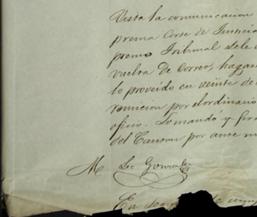 Vista la comunicacion
prema Corte de Justicia
premo Tribunal de
vuelta de Correo, hagase
lo proveido en veinte de
por el ordinario
oficio. Lo mando y fir
del por ante m
M. Leo Gonzalez